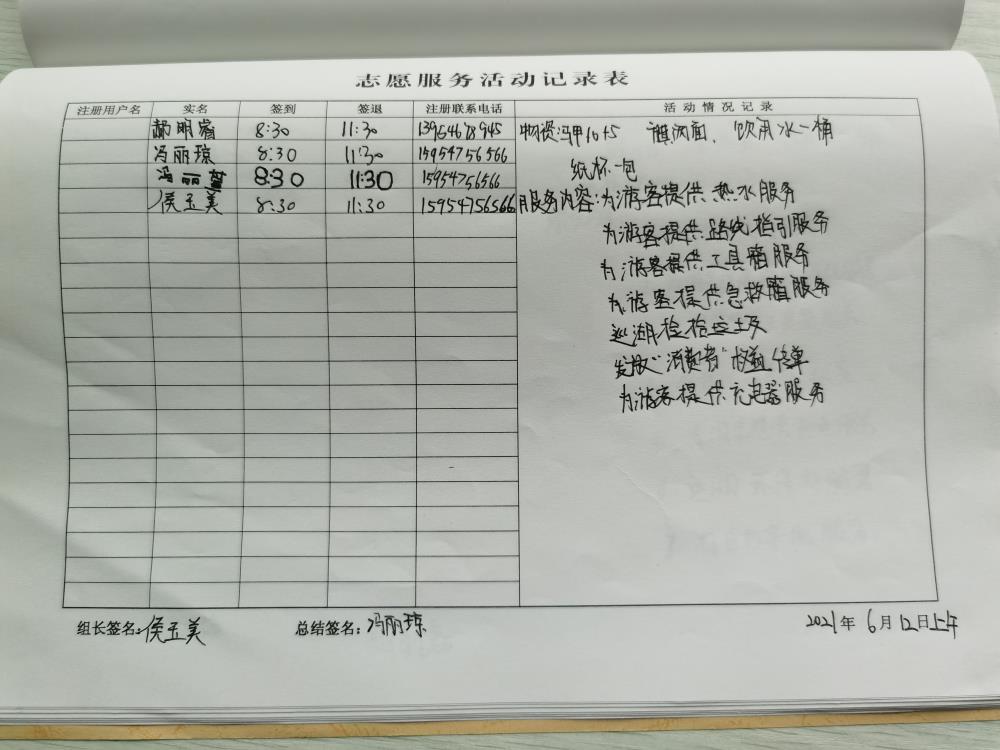 志愿服务活动记录表
注册用户名 实名 签到 签退 注册联系电话 活动情况记录
郝明睿 8:30 11:30 13954678945 物资:马甲10 旗两面、饮用水一桶
冯丽琼 8:30 11:30 15954756566 纸杯一包
冯丽 8:30 11:30 15954756566
侯玉美 8:30 11:30 15954756566 服务内容:为游客提供热水服务
为游客提供路线指引服务
为游客提供工具箱服务
为游客提供急救箱服务
巡湖捡拾垃圾
发放"消费者"权益传单
为游客提供充电器服务
组长签名:侯玉美 总结签名:冯丽琼 2021年6月12日上午